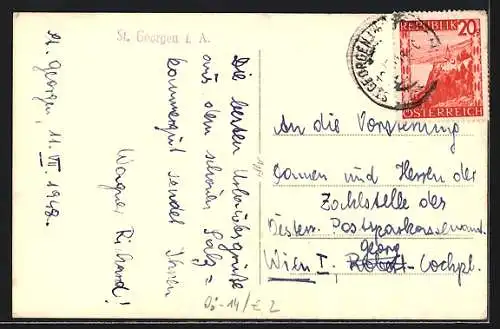 St. Georgen i. A.
St. Georgen, 11. VII. 1948.
Die besten Urlaubsgrüße
aus dem schönen Salz=
kammergut sendet Ihnen
Wagner Richard!
REPUBLIK 20
ÖSTERREICH
ST. GEORGEN I. A
An die
Damen und Herren der
Zahlstelle des
Österr. Postsparkassenamt.
Georg
Wien I. Robert Cochpl.